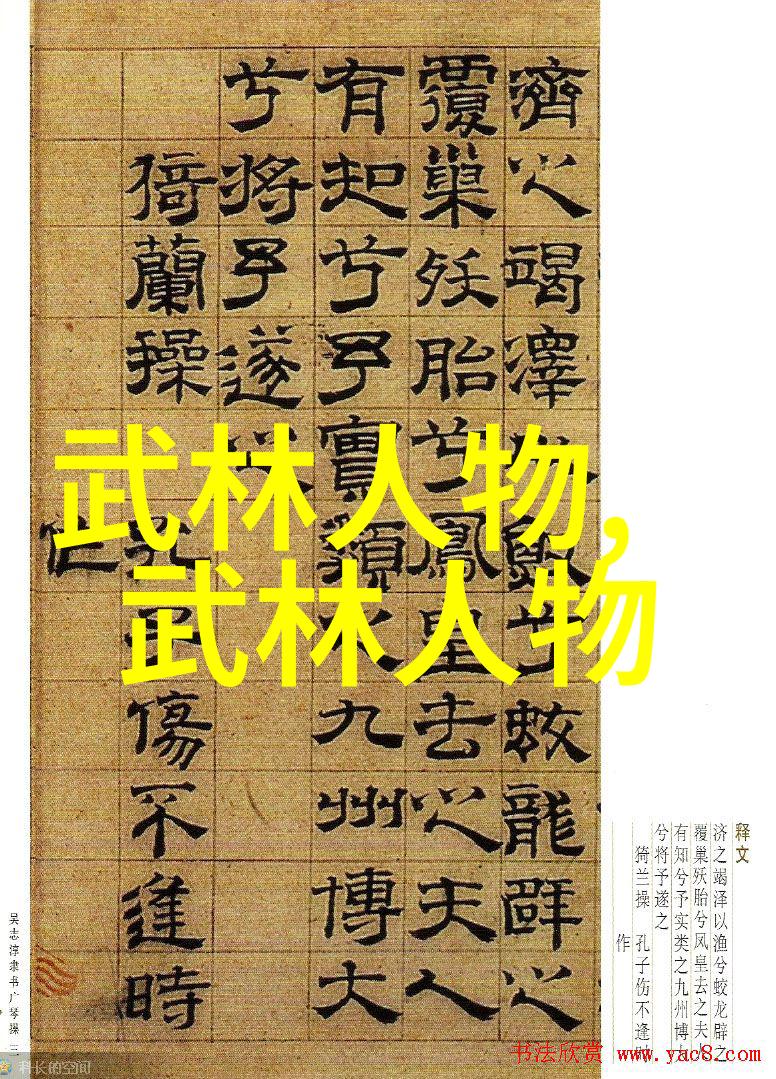 濟之竭澤以漁兮蛟龍辟之
覆巢殀胎兮鳳皇去之夫人
有知兮予實類之九州博大
兮將予遂之
猗蘭操 孔子傷不逢時
作
武林人物,
武林人物
释文
济之竭泽以渔兮蛟龙辟之
覆巢殀胎兮凤皇去之夫
有知兮予实类之九州博
兮将予遂之
猗兰操 孔子伤不逢时
作
吴志淳隶书广琴操
科长的空间
书法欣赏 www.yac8.com